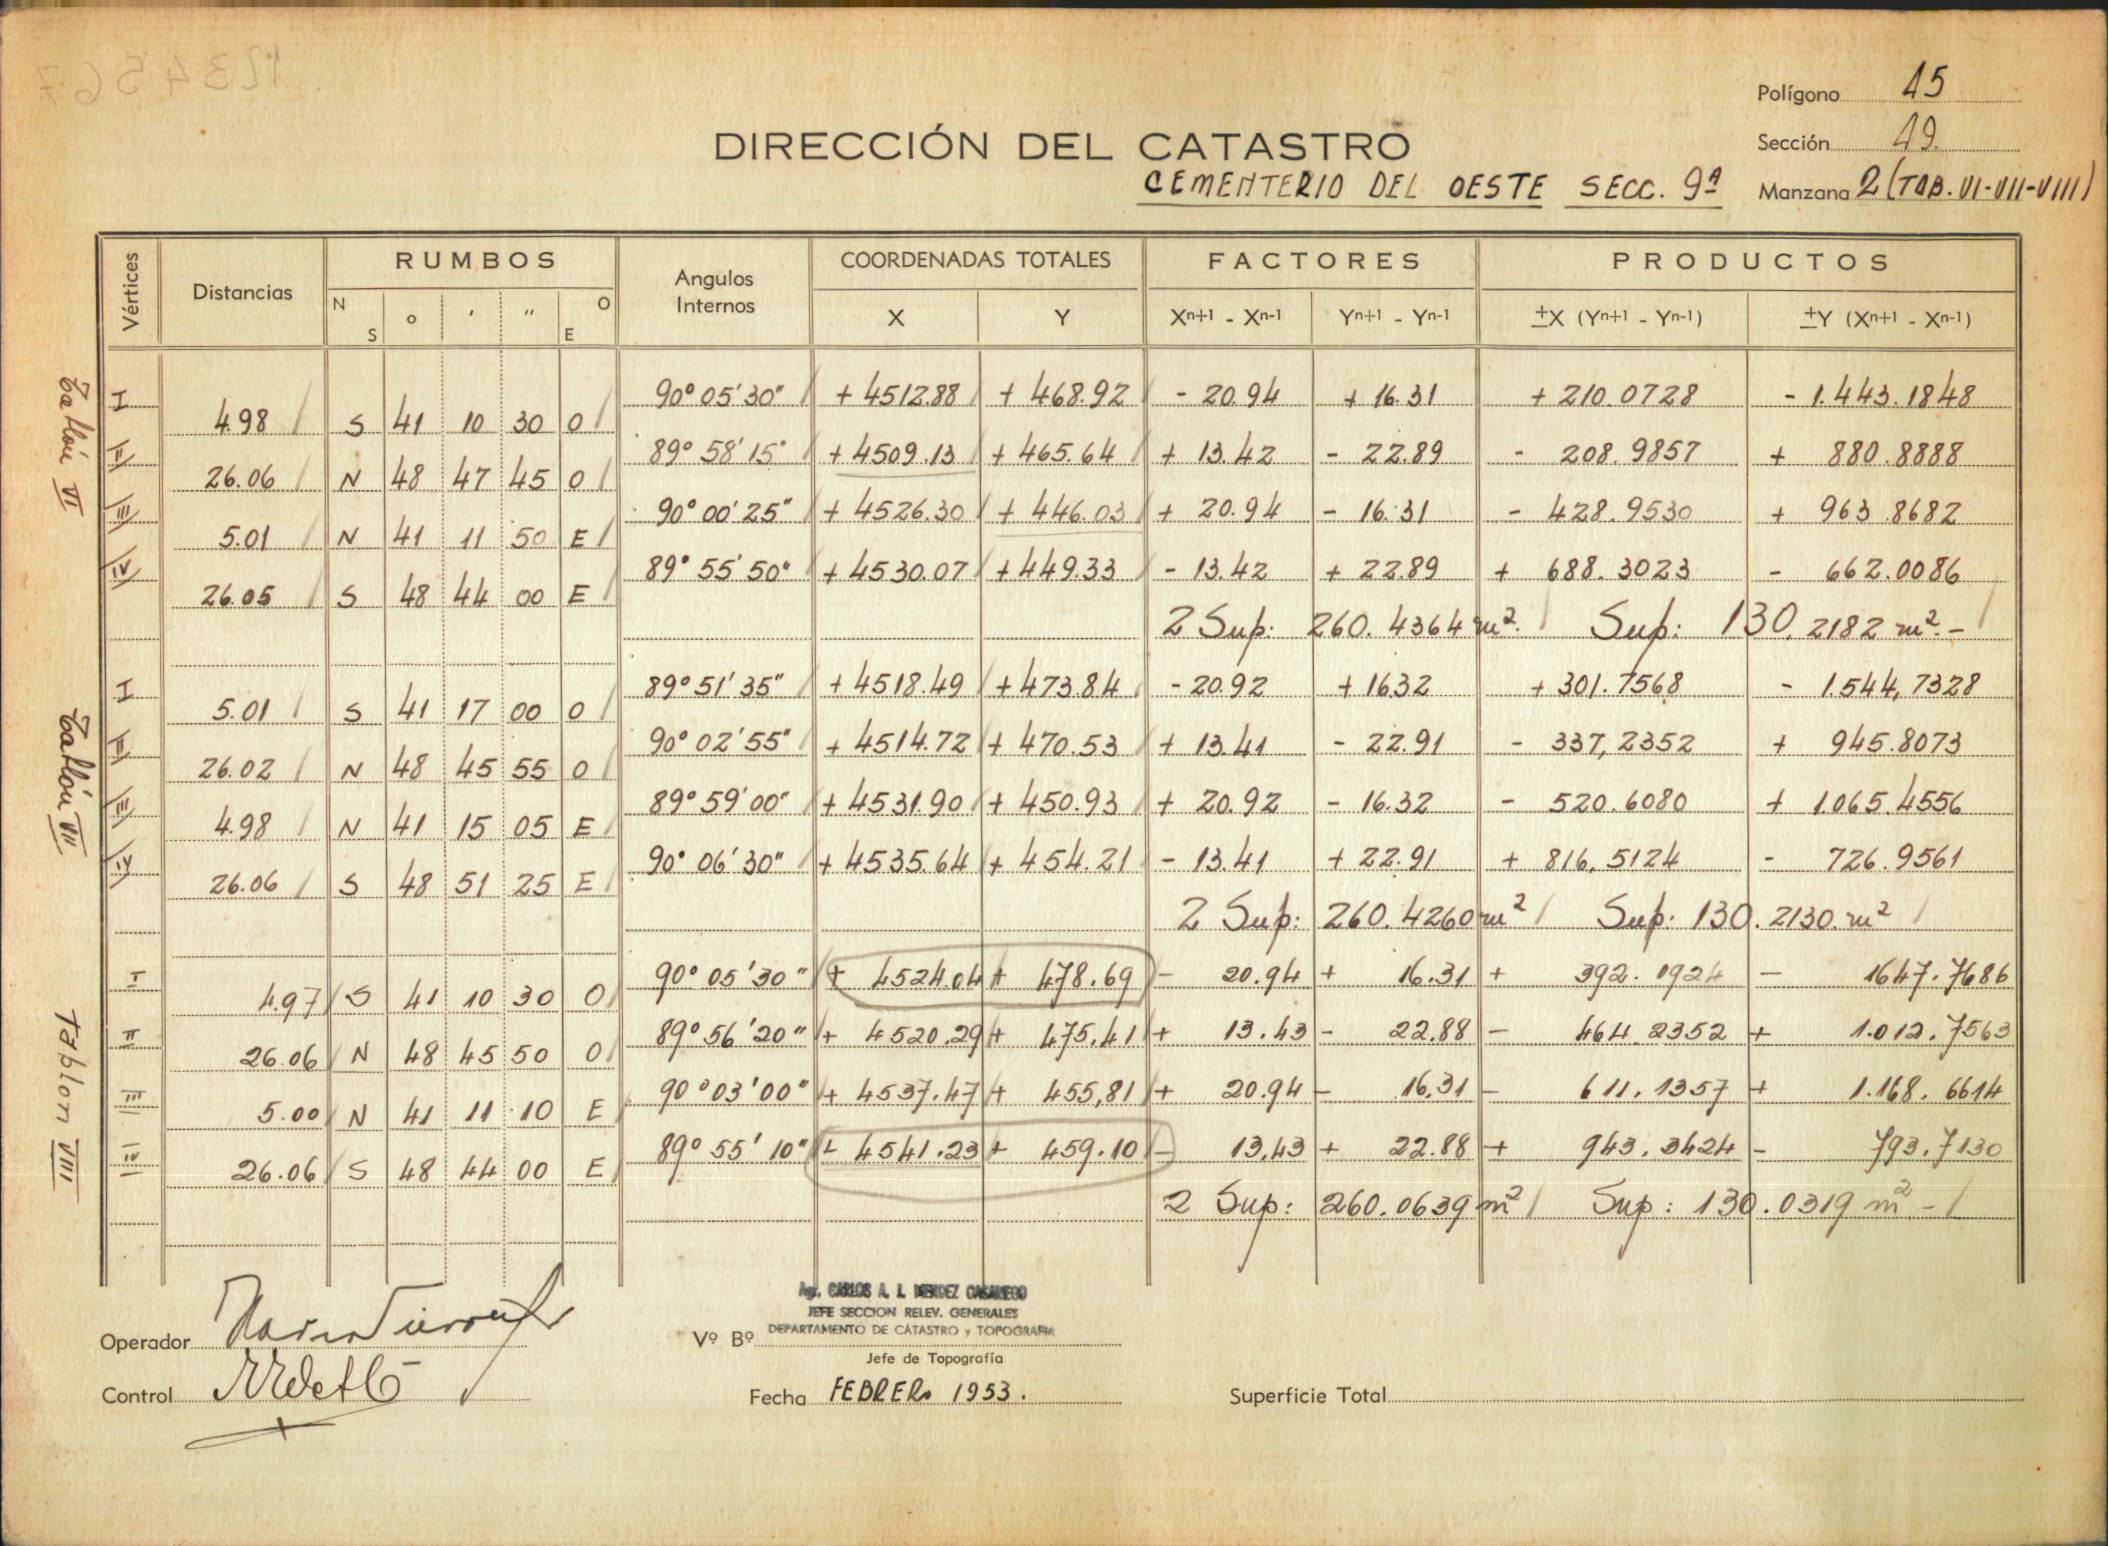 1234567
Polígono 15
Sección 19.
DIRECCIÓN DEL CATASTRO
CEMENTERIO DEL OESTE SECC. 9ª
Manzana 2 (TAB. VI-VII-VIII)
Vértices Distancias RUMBOS Angulos Internos COORDENADAS TOTALES FACTORES PRODUCTOS
N S ° ' " O E X Y Xn+1 - Xn-1 Yn+1 - Yn-1 ±X (Yn+1 - Yn-1) ±Y (Xn+1 - Xn-1)
Tablón VI
I 90° 05' 30" + 4512.88 + 468.92 - 20.94 + 16.31 + 210.0728 - 1.443.1848
4.98 S 41 10 30 O
II 89° 58' 15" + 4509.13 + 465.64 + 13.42 - 22.89 - 208.9857 + 880.8888
26.06 N 48 47 45 O
III 90° 00' 25" + 4526.30 + 446.03 + 20.94 - 16.31 - 428.9530 + 963.8682
5.01 N 41 11 50 E
IV 89° 55' 50" + 4530.07 + 449.33 - 13.42 + 22.89 + 688.3023 - 662.0086
26.05 S 48 44 00 E
2 Sup: 260.4364 m². Sup: 130.2182 m².-
Tablón VII
I 89° 51' 35" + 4518.49 + 473.84 - 20.92 + 16.32 + 301.7568 - 1.544,7328
5.01 S 41 17 00 O
II 90° 02' 55" + 4514.72 + 470.53 + 13.41 - 22.91 - 337,2352 + 945.8073
26.02 N 48 45 55 O
III 89° 59' 00" + 4531.90 + 450.93 + 20.92 - 16.32 - 520.6080 + 1.065.4556
4.98 N 41 15 05 E
IV 90° 06' 30" + 4535.64 + 454.21 - 13.41 + 22.91 + 816,5124 - 726.9561
26.06 S 48 51 25 E
2 Sup: 260.4260 m² Sup: 130.2130. m²
Tablon VIII
I 90° 05' 30" + 4524.04 + 478.69 - 20.94 + 16.31 + 392.0924 - 1647.7686
4.97 S 41 10 30 O
II 89° 56' 20" + 4520.29 + 475,41 + 13.43 - 22.88 - 464.2352 + 1.012.7563
26.06 N 48 45 50 O
III 90° 03' 00" + 4537.47 + 455,81 + 20.94 - 16,31 - 611.1357 + 1.168.6614
5.00 N 41 11 10 E
IV 89° 55' 10" + 4541.23 + 459.10 - 13,43 + 22.88 + 943.3424 - 793.7130
26.06 S 48 44 00 E
2 Sup: 260.0639 m² Sup: 130.0319 m² -
Ag. CARLOS A. J. MENDEZ CASARIEGO
JEFE SECCION RELEV. GENERALES
DEPARTAMENTO DE CATASTRO y TOPOGRAFIA
Operador
Vº Bº
Jefe de Topografía
Control
Fecha FEBRERO 1953.
Superficie Total